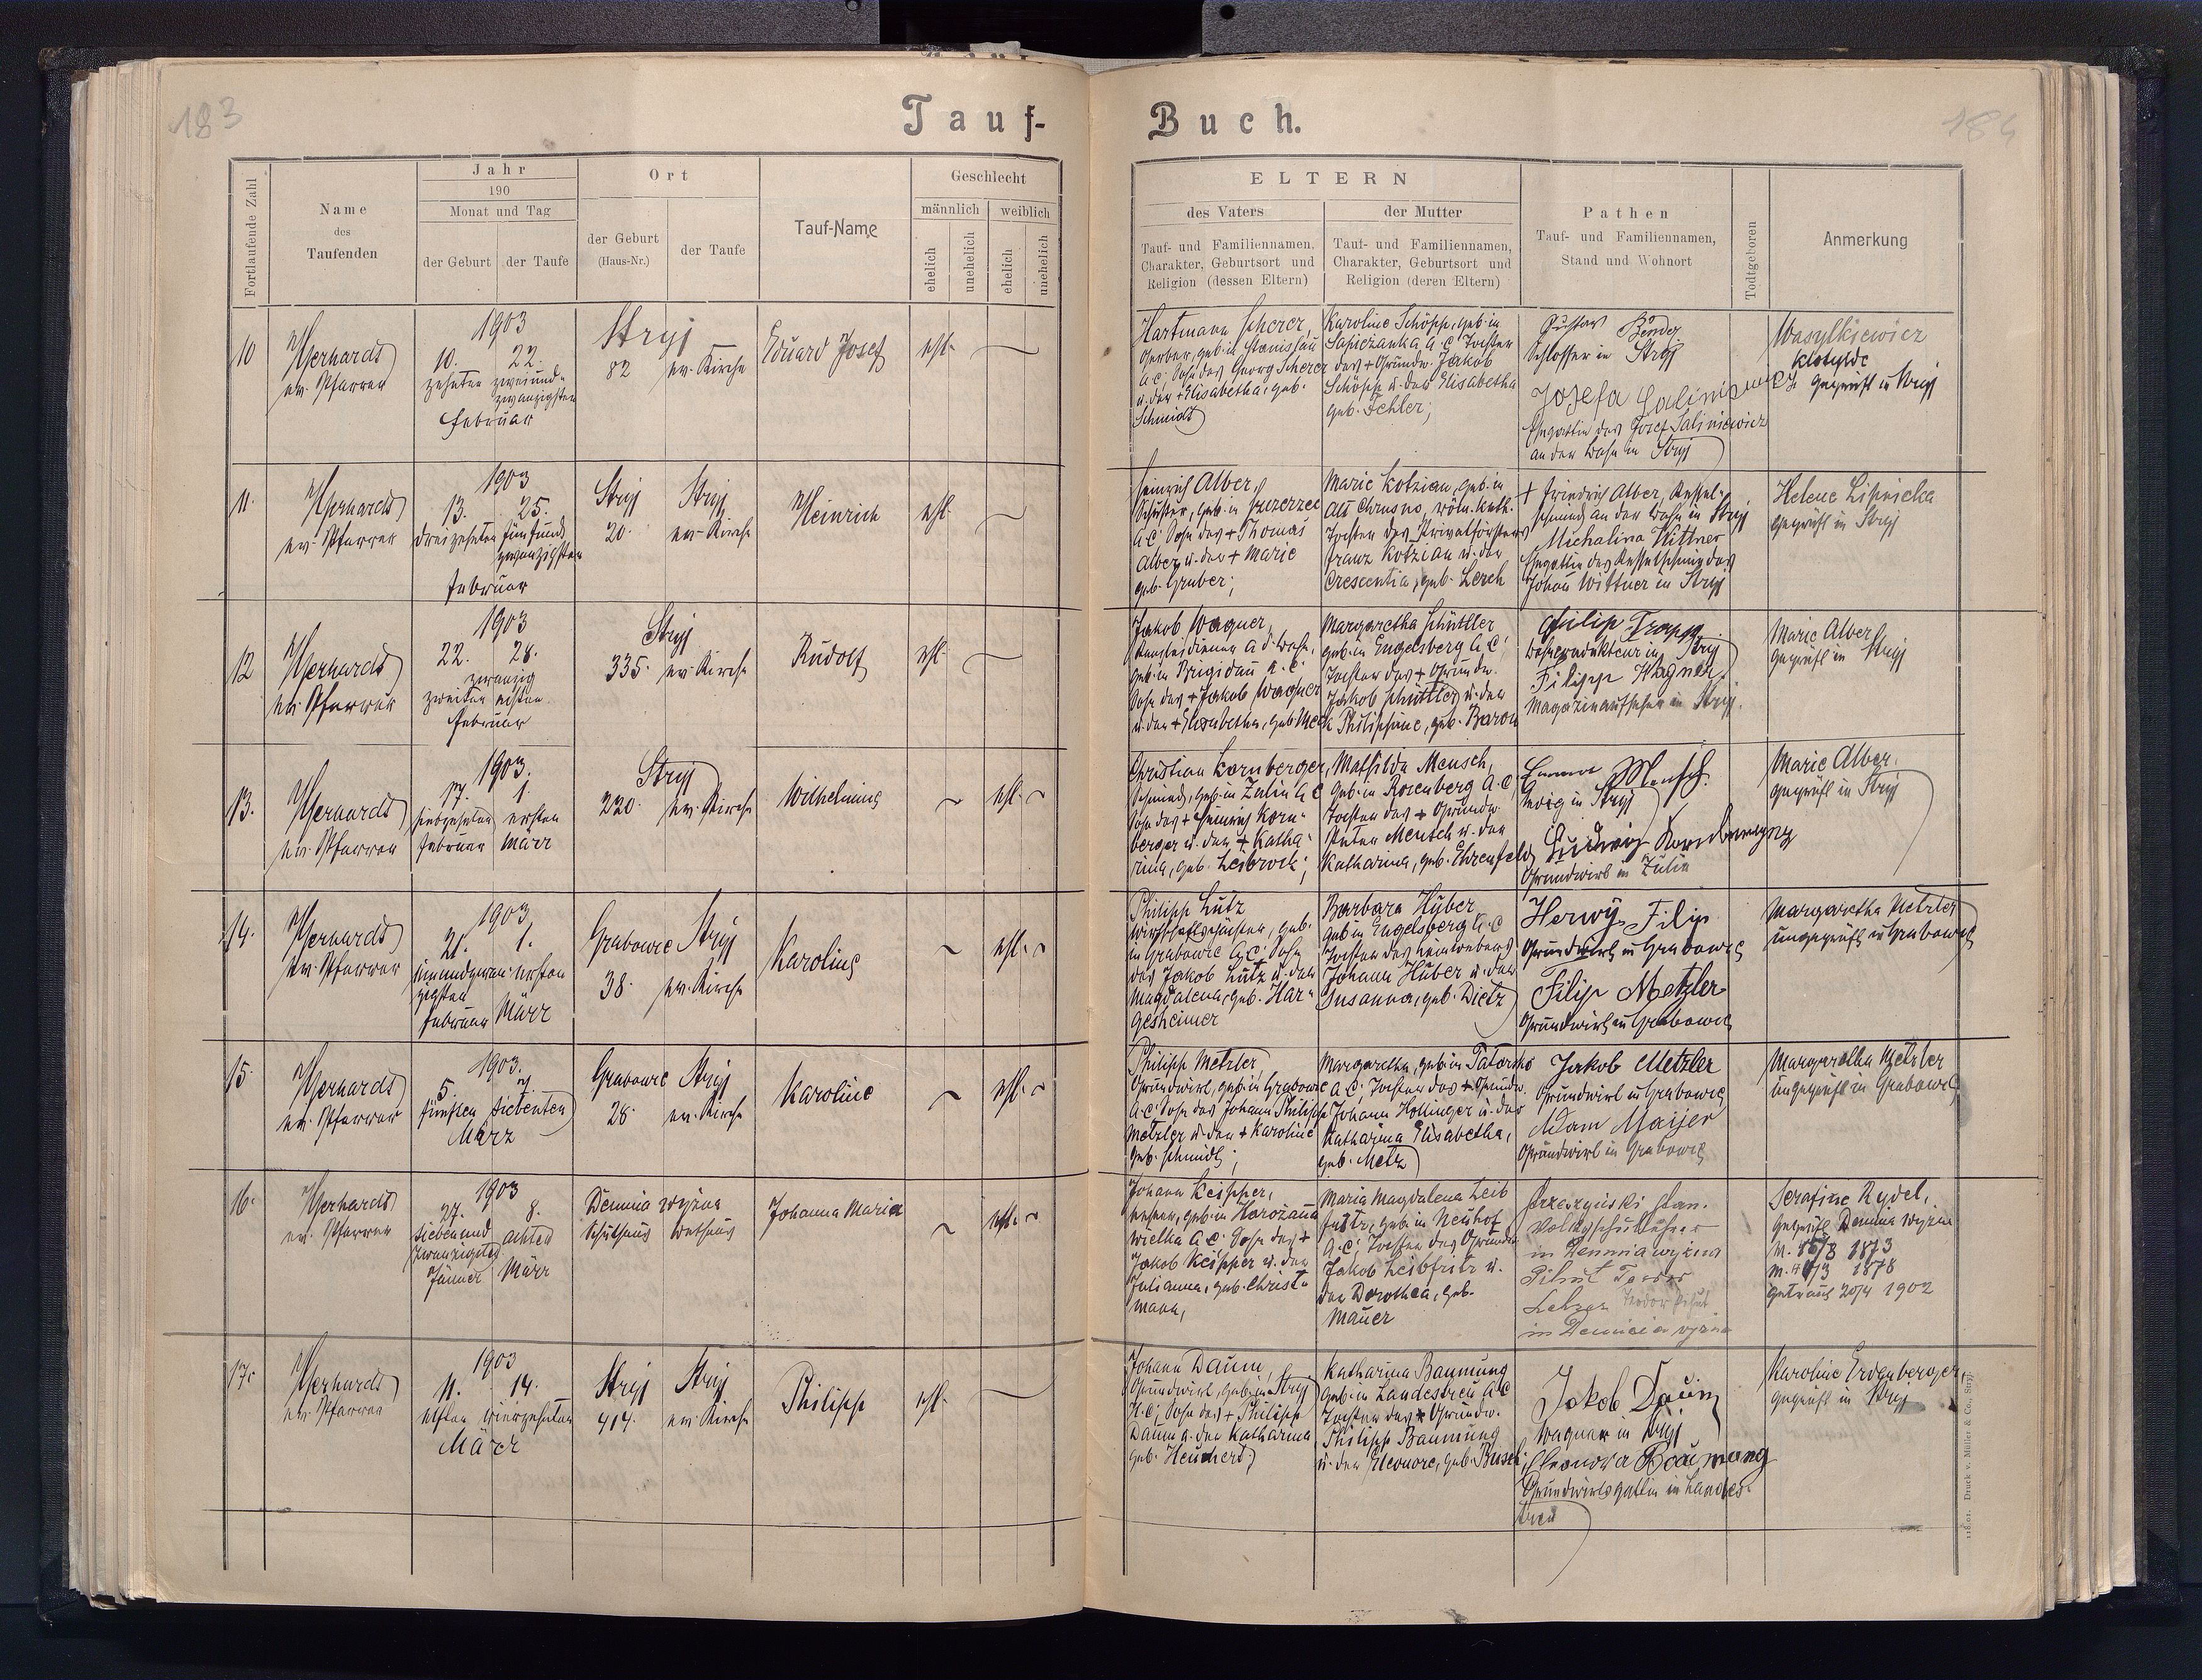 183
Tauf-
Buch.
184
Fortlaufende Zahl
Name
des
Taufenden
Jahr
190
Monat und Tag
der Geburt
der Taufe
Ort
der Geburt
(Haus-Nr.)
der Taufe
Tauf-Name
Geschlecht
männlich
weiblich
ehelich
unehelich
ehelich
unehelich
ELTERN
des Vaters
Tauf- und Familiennamen,
Charakter, Geburtsort und
Religion (dessen Eltern)
der Mutter
Tauf- und Familiennamen,
Charakter, Geburtsort und
Religion (deren Eltern)
Pathen
Tauf- und Familiennamen,
Stand und Wohnort
Todtgeboren
Anmerkung
10
Gerhardt
ev. Pfarrer
1903
10. 22.
zehnten zweiund-
zwanzigsten
Februar
Stryj
82 ev. Kirche
Eduard Josef
ehl.
Hartmann Scherer,
Gerber, geb. in Stanislau
A.C. Sohn des Georg Scherer
u. der + Elisabetha, geb.
Schmidt
Karoline Schöpp, geb. in
Sapiezanka A.C. Tochter
des + Grundw. Jakob
Schöpp u. der Elisabetha
geb. Fehler;
Gustav Bender
Schlosser in Stryj
Josefa
Ehegattin des Josef Saliniewicz
an der Bahn in Stryj
Wasylkiewicz
Klotylde
geprüft in Stryj
11.
Gerhardt
ev. Pfarrer
1903
13. 25.
dreizehnten fünfund
zwanzigsten
Februar
Stryj Stryj
20. ev. Kirche
Heinrich
ehl.
Heinrich Alber,
Schuster, geb. in
A.C. Sohn des + Thomas
Alber u. der + Marie
geb. Gruber;
Marie Kotzian, geb. in
Alt Chrusno, röm. kath.
Tochter des Privatförsters
Franz Kotzian u. der
Crescentia, geb. Lerch
+ Friedrich Alber, Kessel-
schmied an der Bahn in Stryj
Michalina Wittner
Ehegattin des Kesselschmiedes
Johann Wittner in Stryj
Helene Lipnicka
geprüft in Stryj
12
Gerhardt
ev. Pfarrer
1903
22. 28.
zwanzig
zweiten achten
Februar
Stryj
335. ev. Kirche
Rudolf
ehl.
Jakob Wagner,
Kanzleidiener a. d. Bahn,
geb. in Brigidau A.C.
Sohn des + Jakob Wagner
u. der + Elisabetha, geb. Merk
Margaretha Schüttler
geb. in Engelsberg A.C.
Tochter des + Grundw.
Jakob Schüttler u. der
Philippine, geb. Baron
Philip Trapp
Bahnkondukteur in Stryj
Filipp Wagner,
Magazinaufseher in Stryj.
Marie Alber
geprüft in Stryj
13.
Gerhardt
ev. Pfarrer
1903.
17. 1.
siebzehnten ersten
Februar März
Stryj
220. ev. Kirche
Wilhelmine
ehl.
Christian Kornberger,
Schmied, geb. in Zulin A.C.
Sohn des + Heinrich Korn-
berger u. der + Katha-
rina, geb. Leibrock;
Mathilda Mensch,
geb. in Rosenberg A.C.
Tochter des + Grundw.
Peter Mensch u. der
Katharina, geb. Ehrenfeld
Mensch
ledig in Stryj
Ludwig Kornberger
Grundwirt in Zulin
Marie Alber.
geprüft in Stryj
14.
Gerhardt
ev. Pfarrer
1903,
21. 1.
einundzwan- ersten
zigsten
Februar März
Grabowce Stryj
38. ev. Kirche
Karoline
ehl.
Philipp Lutz
Wirthschaftspächter, geb.
in Grabowce A.C. Sohn
des Jakob Lutz u. der
Magdalena, geb. Har-
gesheimer
Barbara Huber
geb. in Engelsberg A.C.
Tochter des Leinwebers
Johann Huber u. der
Susanna, geb. Dietz
Herwy Filip
Grundwirt in Grabowce
Filip Metzler
Grundwirt in Grabowce
Margaretha Metzler
ungeprüft in Grabowce
15.
Gerhardt
ev. Pfarrer
1903.
5. 7.
fünften siebenten
März
Grabowce Stryj
28. ev. Kirche
Karoline
ehl.
Philipp Metzler,
Grundwirt, geb. in Grabowce
A.C. Sohn des Johann Philipp
Metzler u. der + Karoline
geb. Schmidt;
Margaretha, geb. in
A.C. Tochter des + Grundw.
Johann Hollinger u. der
Katharina Elisabetha,
geb. Metz
Jakob Metzler
Grundwirt in Grabowce
Adam Maijer
Grundwirt in Grabowce
Margaretha Metzler
ungeprüft in Grabowce
16.
Gerhardt
ev. Pfarrer
1903
27. 8.
siebenund achten
zwanzigsten
Jänner März
Demnia wyżna
Schulhaus Bethaus
Johanna Maria
ehl.
Johann Keipper,
Lehrer, geb. in Horożanna
wielka A.C. Sohn des +
Jakob Keipper u. der
Julianna, geb. Christ-
mann,
Maria Magdalena Leib
fritz, geb. in Neuhof
A.C. Tochter des Grundw.
Jakob Leibfritz u.
der Dorothea, geb.
Mauer
Stan.
Volksschullehrer
in Demnia wyżna
Lehrer
in Demnia wyżna
Serafine Rydel,
geprüft Demnia wyżna
1873
1878
getraut 20/4 1902
17.
Gerhardt
ev. Pfarrer
1903
11. 14.
elften vierzehnten
März
Stryj Stryj
414. ev. Kirche
Philipp
ehl.
Johann Daum,
Grundwirt, geb. in Stryj
H.C. Sohn des + Philipp
Daum u. der Katharina
geb. Heuchert,
Katharina Baumung
geb. in Landestreu A.C.
Tochter des + Grundw.
Philipp Baumung
u. der Eleonore, geb. Busch;
Jakob Daum
Wagner in Stryj
Eleonora Baumung
Grundwirtsgattin in Landes-
treu
Karoline Erdenberger,
geprüft in Stryj
118.01. Druck v. Müller & Co., Stryj.